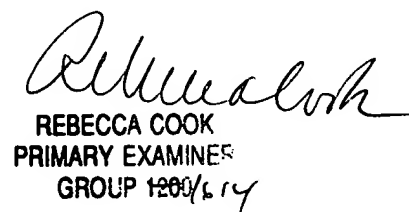 Rebecca Cook
REBECCA COOK
PRIMARY EXAMINER
GROUP 1200/614